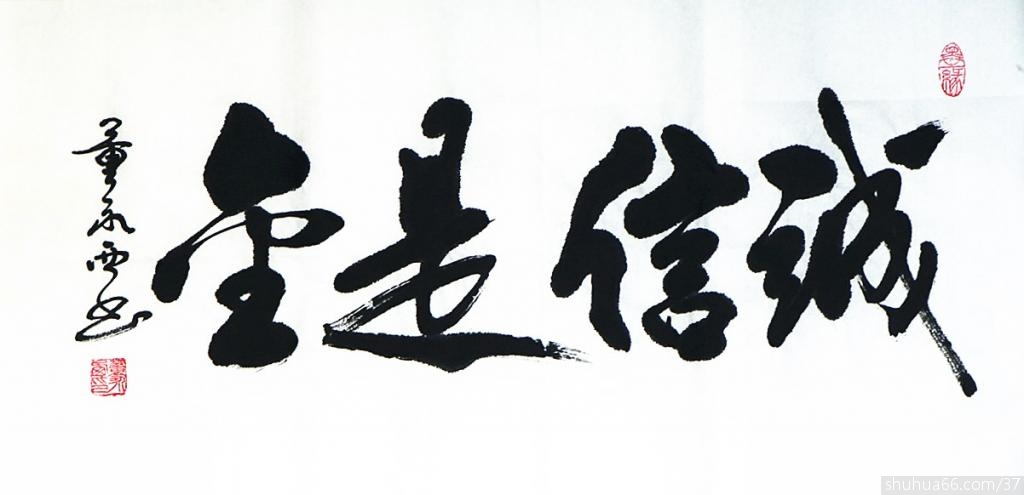 诚信是金
董永西书
shuhua66.com/37